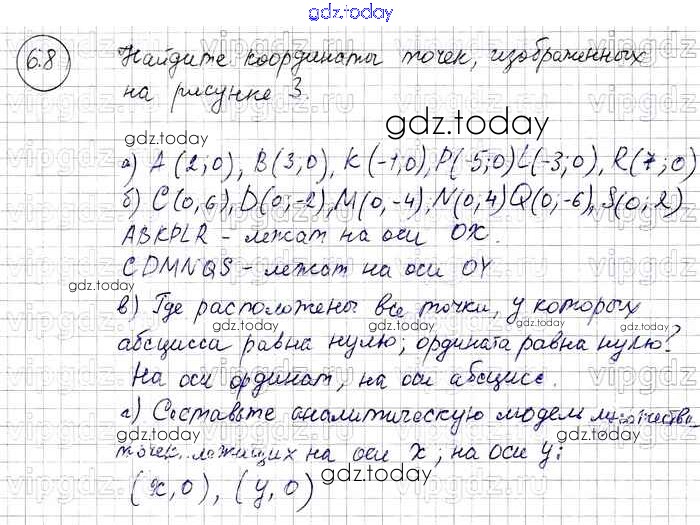 gdz.today
6.8
Найдите координаты точек, изображенных
на рисунке 3.
gdz.today
gdz.today
а) A (2;0), B(3,0), K(-1,0), P(-5;0) L(-3;0), R(7;0)
gdz.today
б) C(0,6), D(0,-2), M(0,-4), N(0,4) Q(0,-6), S(0,2)
ABKPLR - лежат на оси OX.
CDMNQS - лежат на оси OY
gdz.today
в) Где расположены все точки, у которых
gdz.today gdz.today gdz.today
абсцисса равна нулю; ордината равна нулю?
На оси ординат, на оси абсцисс.
г) Составьте аналитическую модель множества
gdz.today gdz.today
точек, лежащих на оси x; на оси y:
gdz.today
(x,0), (y,0)